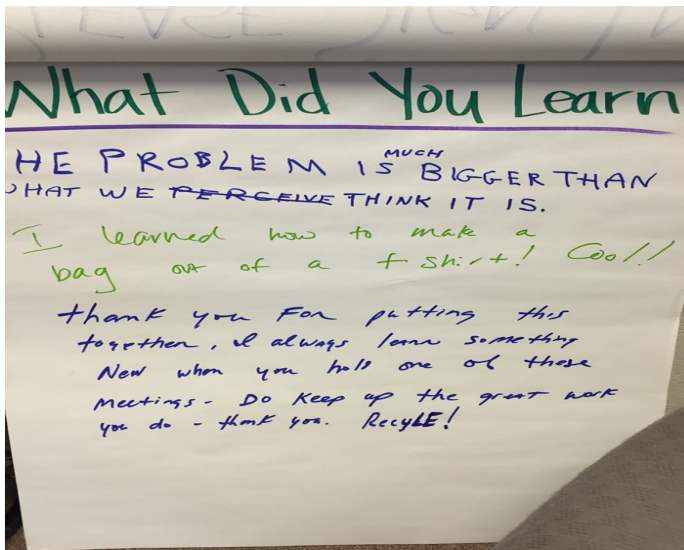 PLEASE SIGN IN
What Did You Learn
HE PROBLEM IS MUCH BIGGER THAN
HAT WE PERCEIVE THINK IT IS.
I learned how to make a
bag out of a t shirt! Cool!
thank you For putting this
together, I always learn something
New when you hold one of these
Meetings - Do Keep up the great work
you do - thank you. RecyLE!